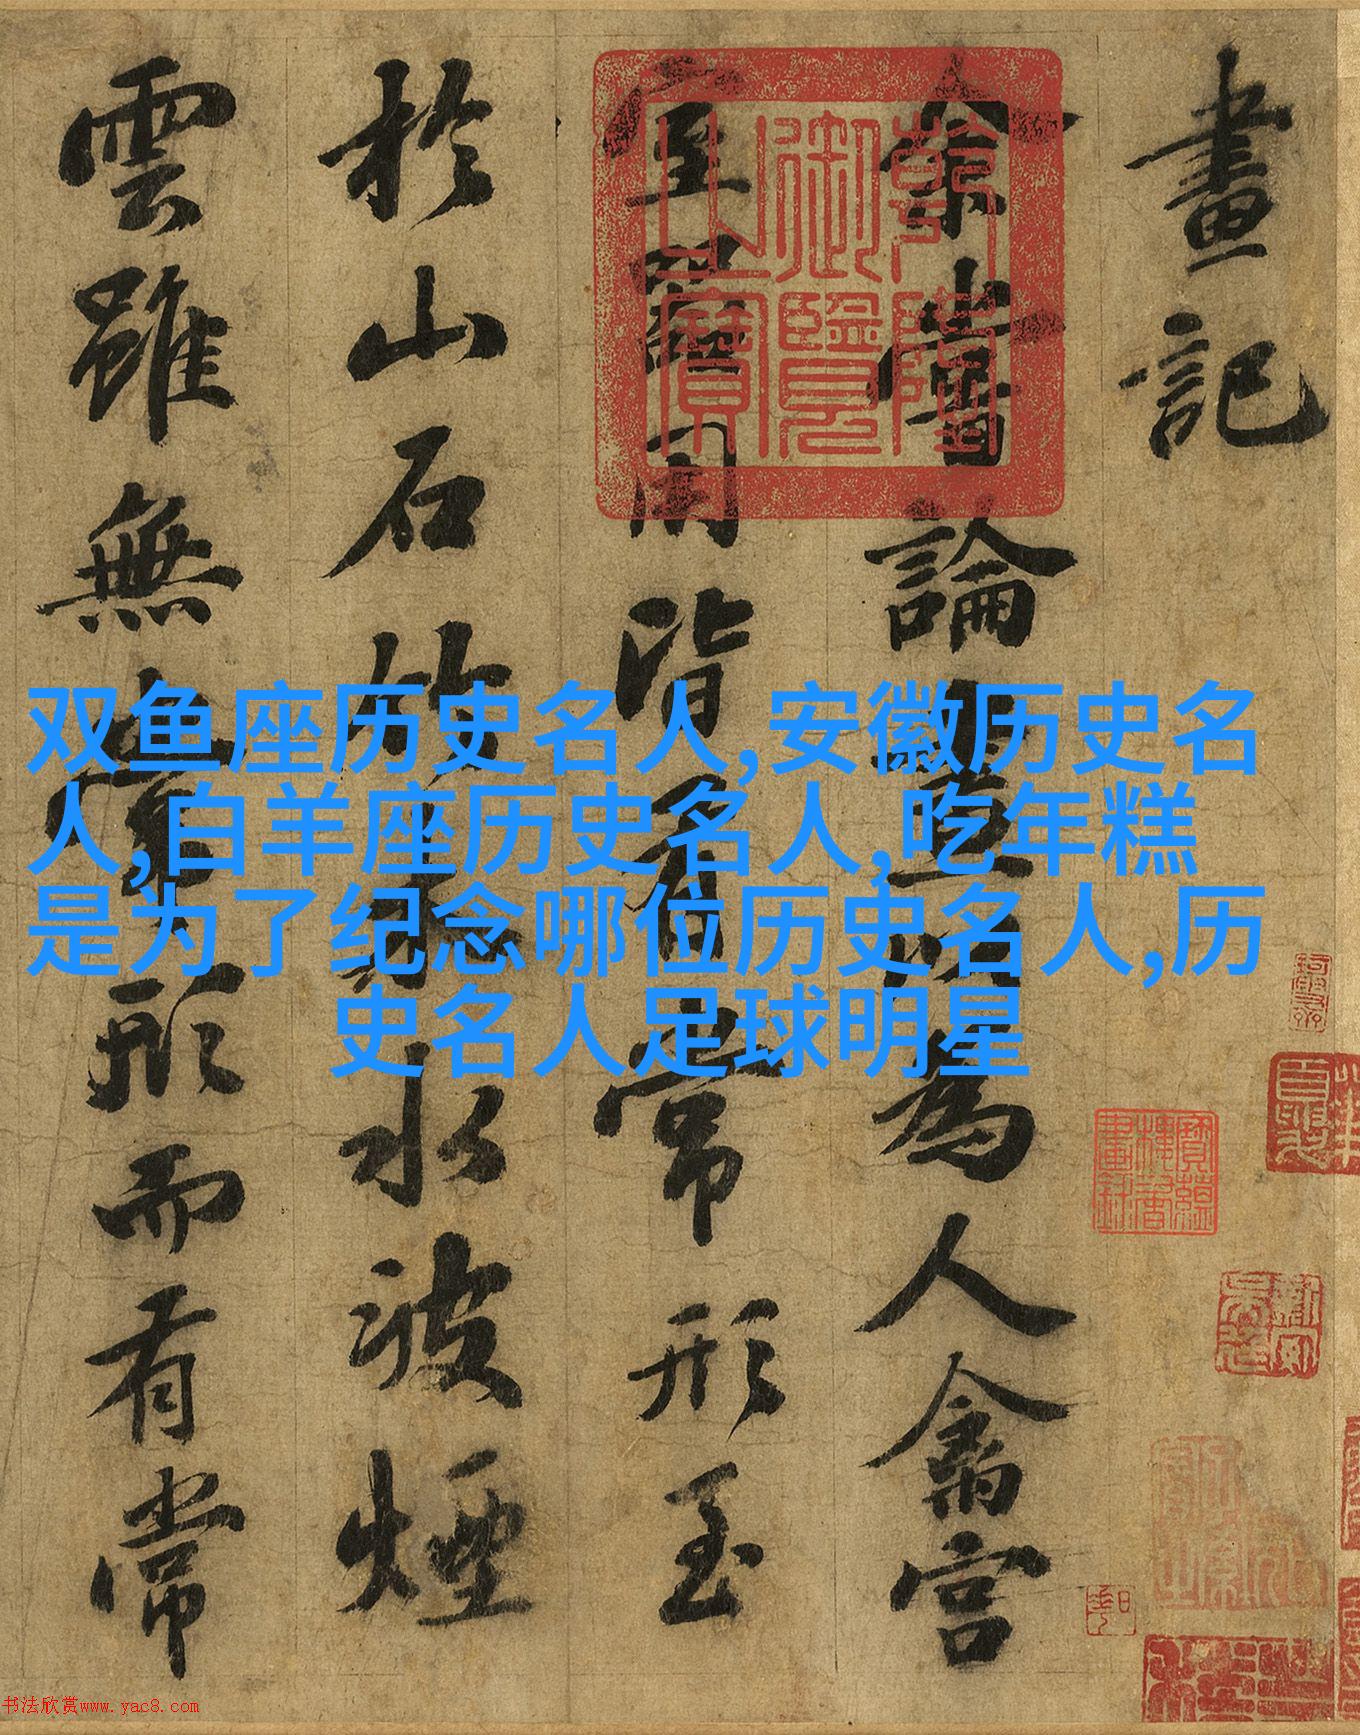 畫記
余嘗論畫以為人禽宮
室器用皆有常形至
於山石竹木水波煙
雲雖無常形而有常
乾隆御覽之寶
双鱼座历史名人,安徽历史名
人,白羊座历史名人,吃年糕
是为了纪念哪位历史名人,历
史名人足球明星
书法欣赏www.yac8.com